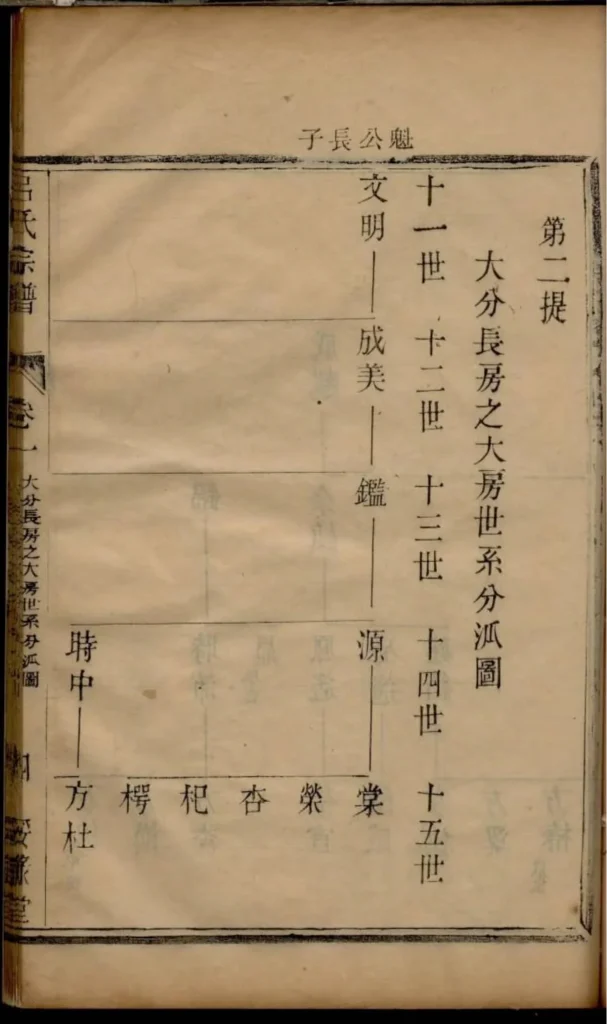 魁公長子
第二提
大分長房之大房世系分派圖
十一世 十二世 十三世 十四世 十五世
文明 成美 鑑 源 棠
榮
杏
杞
樗
時中 方杜
呂氏宗譜 卷一 大分長房之大房世系分派圖 四